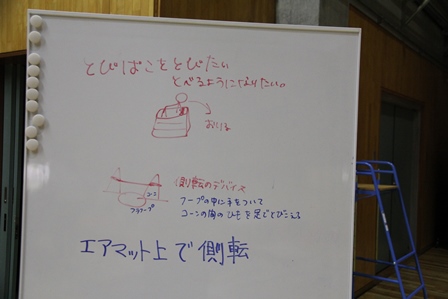 とびばこをとびたい
とべるようになりたい。
おりる
側転のデバイス
フープの中に手をついて
コーンの間のひもを足でとびこえる
フラフープ
エアマット上で側転